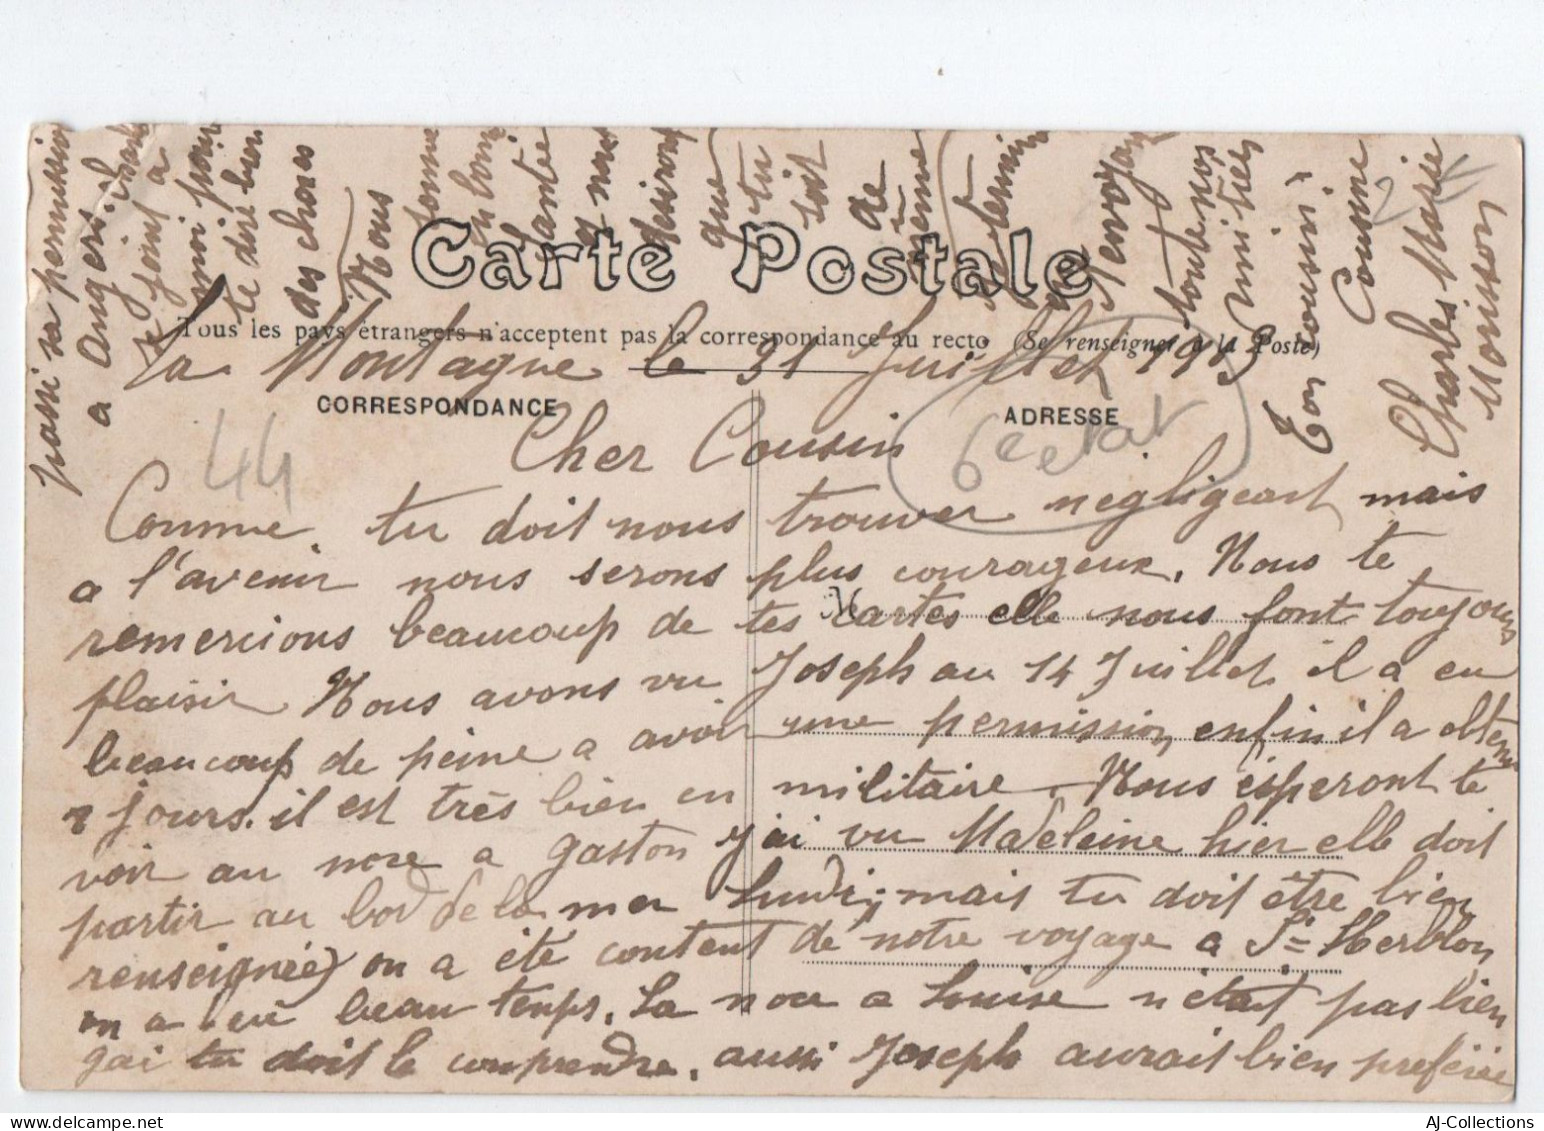 Carte Postale
Tous les pays étrangers n'acceptent pas la correspondance au recto (Se renseigner à la Poste)
La Montagne le 31 Juillet 19
CORRESPONDANCE
ADRESSE
44
Cher Cousin
Comme tu doit nous trouver negligeant mais
a l'avenir nous serons plus courageux. Nous te
remercions beaucoup de tes cartes elle nous font toujours
plaisir Nous avons vu Joseph au 14 Juillet il a eu
beaucoup de peine a avoir une permission enfin il a obtenu
2 jours. il est très bien en militaire. Nous esperont te
voir au noce a gaston j'ai vu Madeleine hier elle doit
partir au bord de la mer Lundi, mais tu doit être bien
renseignée) on a été content de notre voyage a St= Herblon
on a eu beau temps. La noce a Louise n'etait pas bien
gai tu doit le comprendre. aussi Joseph aurait bien preferée
passé sa permission
a Angers.
Je joint a
moi pour
te dire bien
des choses
Nous
somme
en bonne
santée
a nous
desirons
que
tu
soit
de
même
Je termine
en
t'envoyant
toute nos
amitiés
Ton cousin,
Cousine
Charles Marie
Morisson
M
AJ-Collections